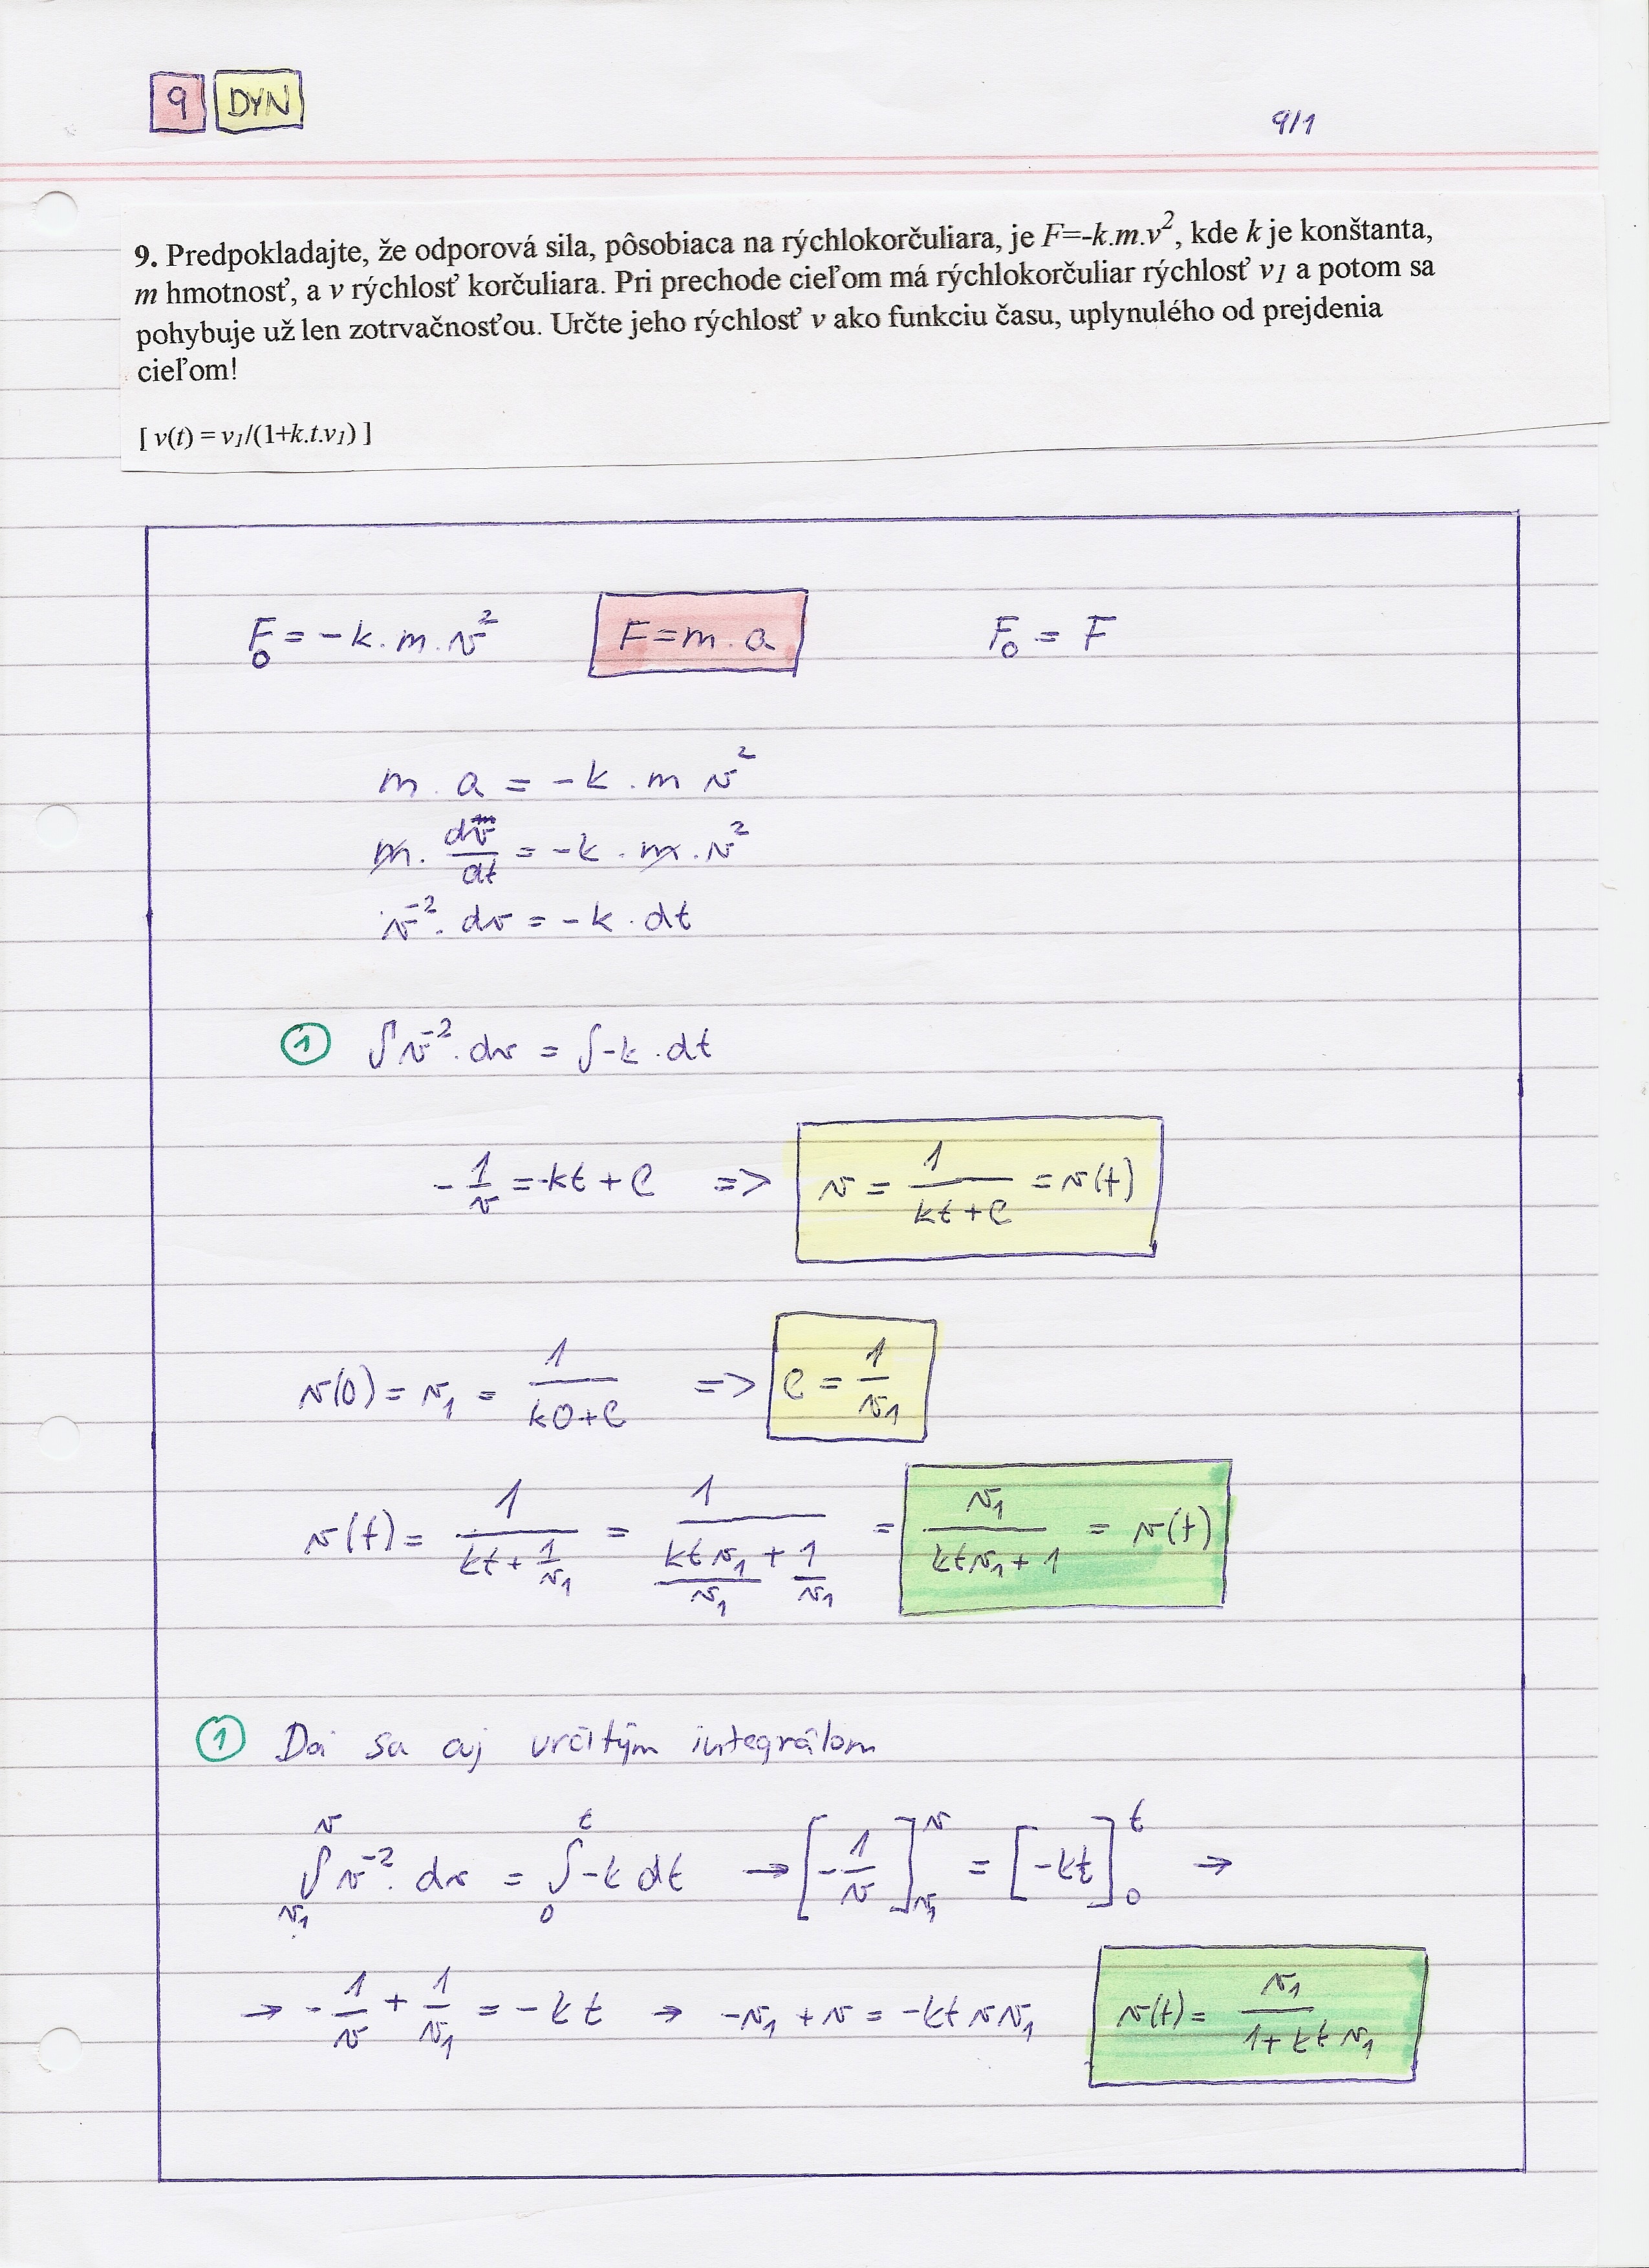 9 DYN
9/1
9. Predpokladajte, že odporová sila, pôsobiaca na rýchlokorčuliara, je F=-k.m.v², kde k je konštanta,
m hmotnosť, a v rýchlosť korčuliara. Pri prechode cieľom má rýchlokorčuliar rýchlosť v₁ a potom sa
pohybuje už len zotrvačnosťou. Určte jeho rýchlosť v ako funkciu času, uplynulého od prejdenia
cieľom!
[ v(t) = v₁/(1+k.t.v₁) ]
F₀ = -k.m.v² F=m.a F₀ = F
m.a = -k.m v²
m. dv/dt = -k.m.v²
v⁻². dv = -k.dt
① ∫v⁻².dv = ∫-k.dt
-1/v = -kt + C => v = 1/(kt+C) = v(t)
v(0) = v₁ = 1/(k0+C) => C = 1/v₁
v(t) = 1/(kt + 1/v₁) = 1/(ktv₁/v₁ + 1/v₁) = v₁/(ktv₁+1) = v(t)
① Dá sa aj určitým integrálom
∫_{v₁}^{v} v⁻². dv = ∫_{0}^{t} -k dt → [-1/v]_{v₁}^{v} = [-kt]_{0}^{t} →
→ -1/v + 1/v₁ = -kt → -v₁ + v = -ktvv₁ v(t) = v₁/(1+ktv₁)